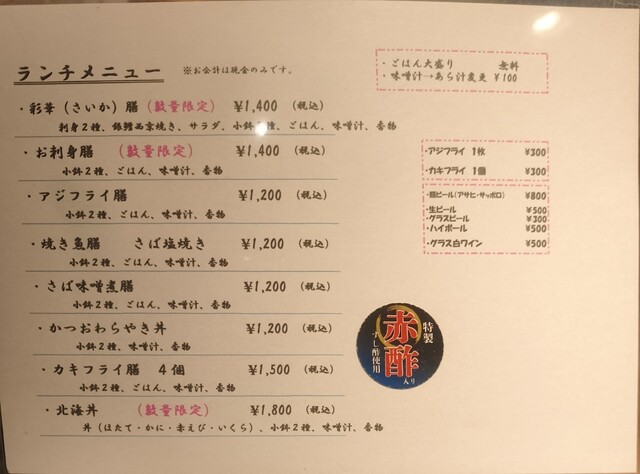 ランチメニュー ※お会計は現金のみです。
・ごはん大盛り 無料
・味噌汁→あら汁変更 ¥100
・彩華（さいか）膳（数量限定） ¥1,400 （税込）
刺身２種、銀鱈西京焼き、サラダ、小鉢２種、ごはん、味噌汁、香物
・お刺身膳 （数量限定） ¥1,400 （税込）
小鉢２種、ごはん、味噌汁、香物
・アジフライ膳 ¥1,200 （税込）
小鉢２種、ごはん、味噌汁、香物
・焼き魚膳 さば塩焼き ¥1,200 （税込）
小鉢２種、ごはん、味噌汁、香物
・さば味噌煮膳 ¥1,200 （税込）
小鉢２種、ごはん、味噌汁、香物
・かつおわらやき丼 ¥1,200 （税込）
小鉢２種、味噌汁、香物
・カキフライ膳 ４個 ¥1,500 （税込）
小鉢２種、ごはん、味噌汁、香物
・北海丼 （数量限定） ¥1,800 （税込）
丼（ほたて・かに・赤えび・いくら）、小鉢２種、味噌汁、香物
・アジフライ 1枚 ¥300
・カキフライ 1個 ¥300
・瓶ビール（アサヒ・サッポロ） ¥800
・生ビール ¥500
・グラスビール ¥300
・ハイボール ¥500
・グラス白ワイン ¥500
特製
赤酢入り
すし酢使用